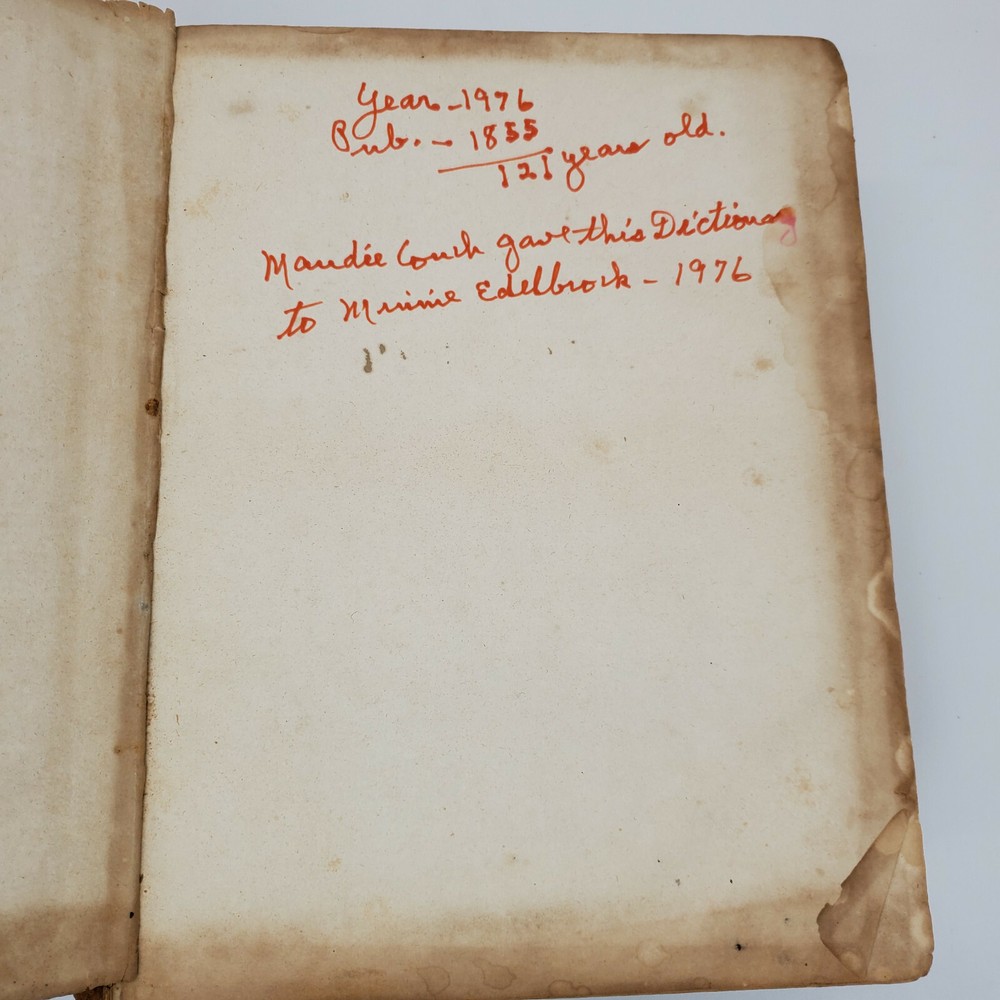 Year - 1976
Pub. - 1855
121 years old.
Maudie Couch gave this Dictionary
to Minnie Edelbrock - 1976